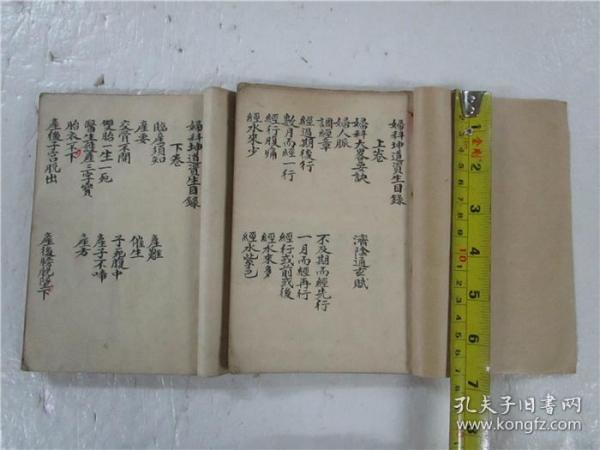 婦科坤道資生目錄
上卷
婦科大畧要訣
濟陰通玄賦
婦人脈
調經章
經過期後行
不及期而經先行
數月而經一行
一月而經再行
經行腹痛
經行或前或後
經水來少
經水來多
經水紫色
婦科坤道資生目錄
下卷
臨產須知
產難
產要
催生
交骨不開
子死腹中
雙胎一生一死
產子不啼
醫生護產三字寶
產方
胎衣不下
產後子宮脫出
產後膀胱落下
1
2
3
4
5
6
7
10
孔夫子旧書网
www.kongfz.com